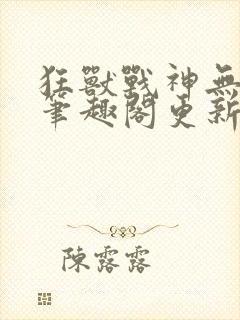 狂獸戰神無
筆趣閣更新
陳露露